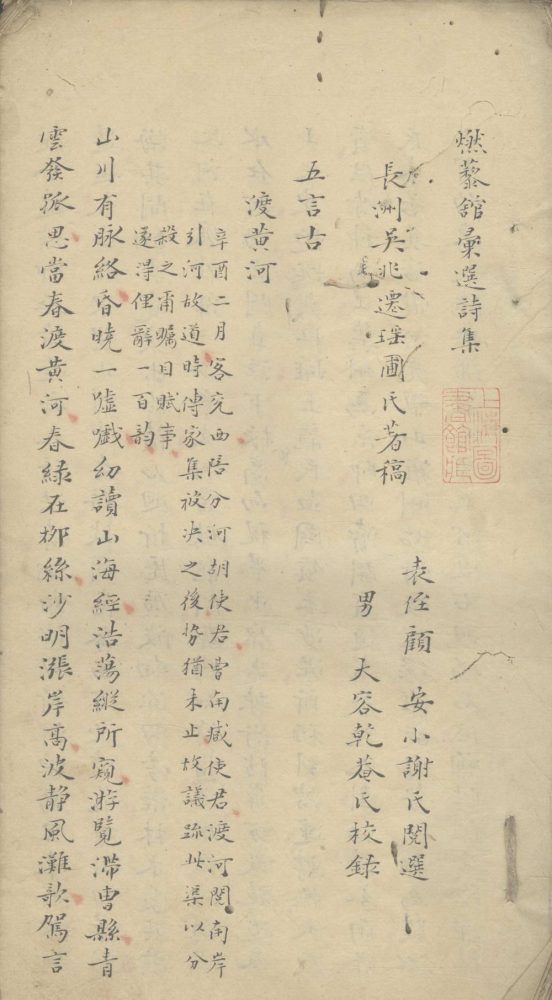 燃藜館彙選詩集
上海圖書館藏
表侄顧 安小謝氏閱選
長洲吳兆遷瑶圃氏著稿
男 大容乾菴氏校錄
五言古
渡黃河
辛酉二月客兖西陪分河胡使君曹南臧使君渡河閱南岸
引河故道時傳家集被決之後勢猶未止故議疏此渠以分
殺之甫矚目賦事
遂得俚辭一百韵
山川有脉絡昏曉一噓嚱幼讀山海經浩蕩縱所窺游覽滞曹縣青
雲發孤思當春渡黃河春綠在柳絲沙明漲岸高波静風灘歌駕言